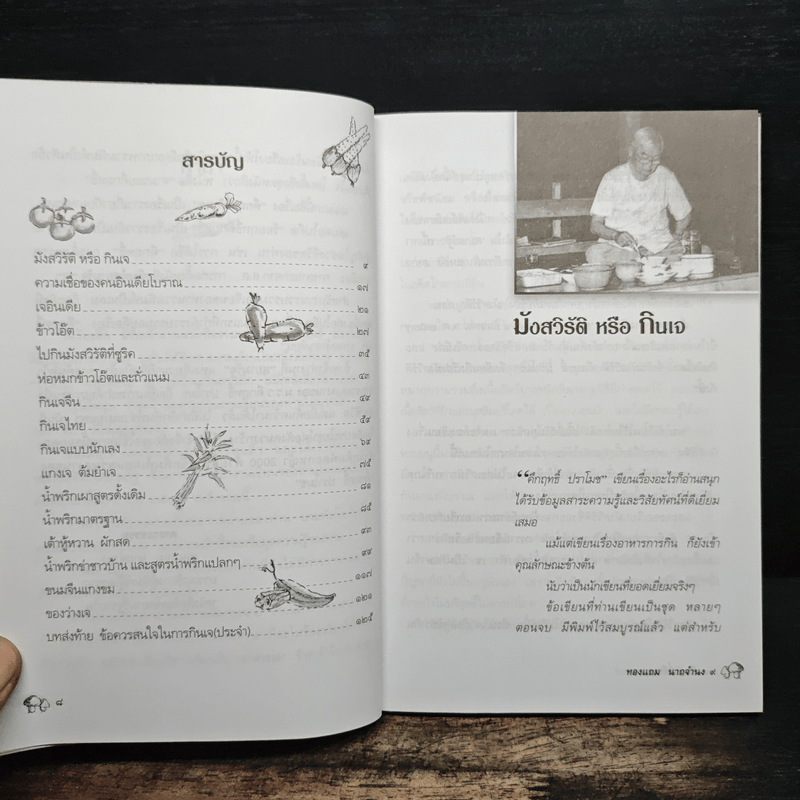 สารบัญ
มังสวิรัติ หรือ กินเจ ๙
ความเชื่อของคนอินเดียโบราณ ๑๗
เจอินเดีย ๒๑
ข้าวโอ๊ต ๒๗
ไปกินมังสวิรัติที่ซูริค ๓๕
ห่อหมกข้าวโอ๊ตและถั่วแนม ๔๓
กินเจจีน ๔๙
กินเจไทย ๕๙
กินเจแบบนักเลง ๖๙
แกงเจ ต้มยำเจ ๗๕
น้ำพริกเผาสูตรดั้งเดิม ๘๑
น้ำพริกมาตรฐาน ๘๕
เต้าหู้หวาน ผักสด ๙๓
น้ำพริกข่าชาวบ้าน และสูตรน้ำพริกแปลกๆ ๙๙
ขนมจีนแกงขม ๑๑๗
ของว่างเจ ๑๒๑
บทส่งท้าย ข้อควรสนใจในการกินเจ(ประจำ) ๑๒๕
๘
มังสวิรัติ หรือ กินเจ
“คึกฤทธิ์ ปราโมช” เขียนเรื่องอะไรก็อ่านสนุก
ได้รับข้อมูลสาระความรู้และวิสัยทัศน์ที่ดีเยี่ยม
เสมอ
แม้แต่เขียนเรื่องอาหารการกิน ก็ยังเข้า
คุณลักษณะข้างต้น
นับว่าเป็นนักเขียนที่ยอดเยี่ยมจริงๆ
ข้อเขียนที่ท่านเขียนเป็นชุด หลายๆ
ตอนจบ มีพิมพ์ไว้สมบูรณ์แล้ว แต่สำหรับ
ทองแถม นาถจำนง ๙